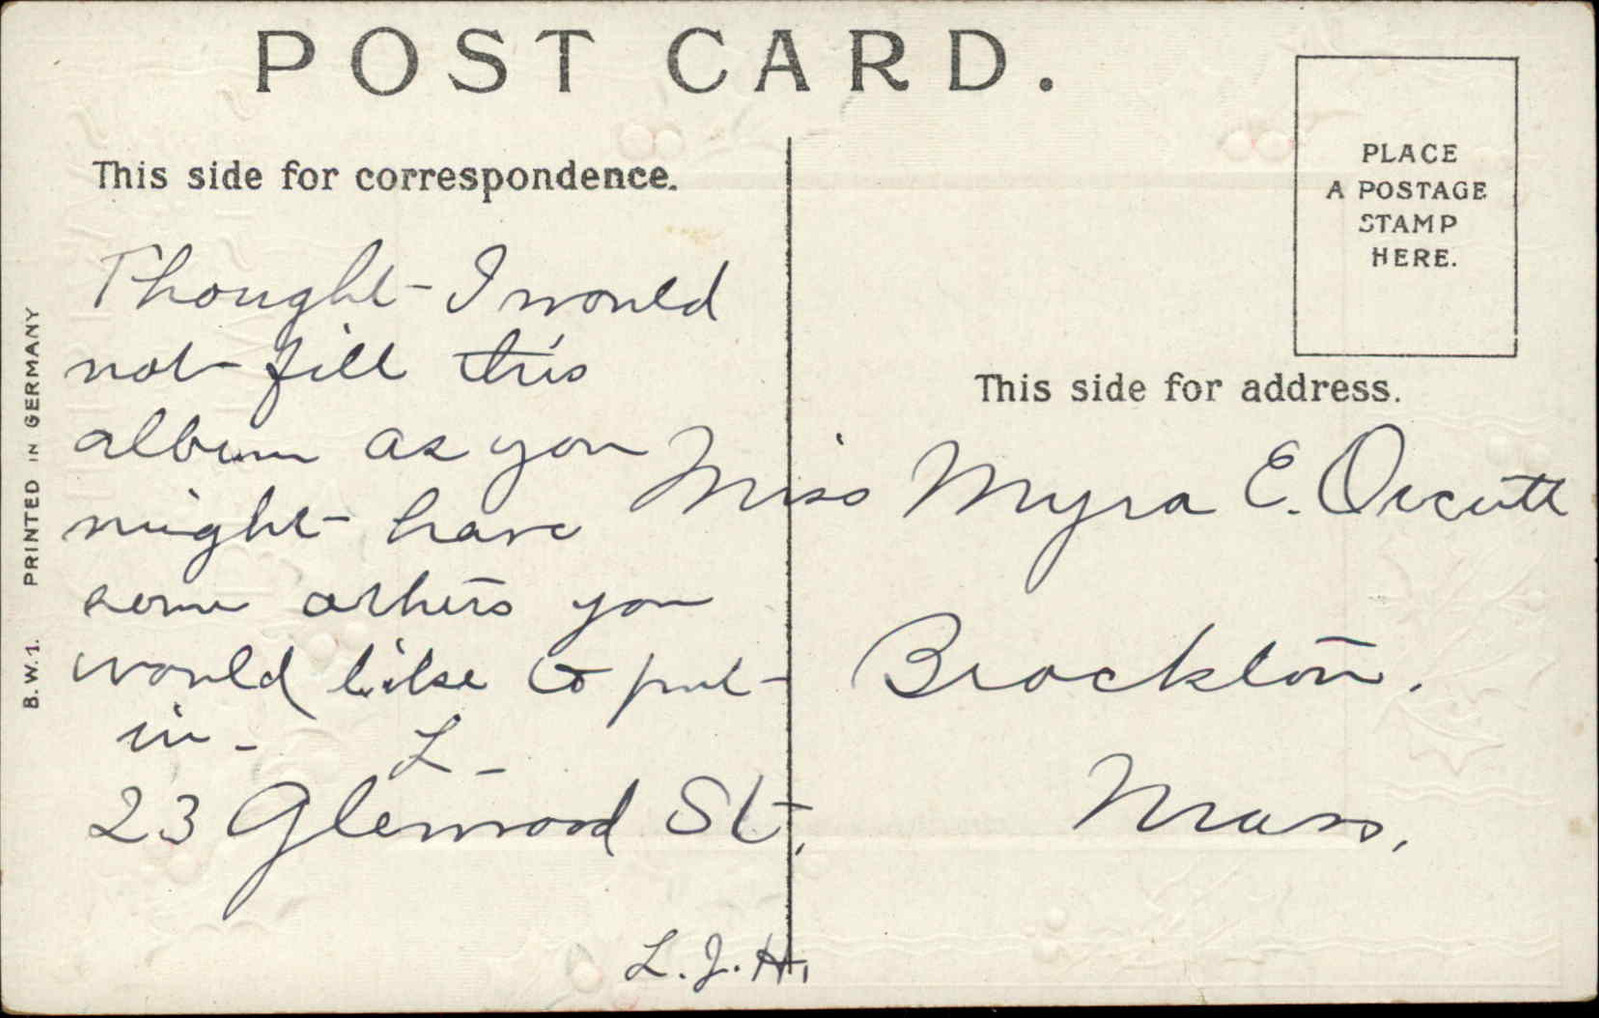 POST CARD.
This side for correspondence.
PLACE
A POSTAGE
STAMP
HERE.
This side for address.
Thought I would
not fill this
album as you
might have
some others you
would like to put
in - L -
23 Glenwood St.
L. J. H.
Miss Myra E. Orcutt
Brockton.
Mass.
B.W.1. PRINTED IN GERMANY